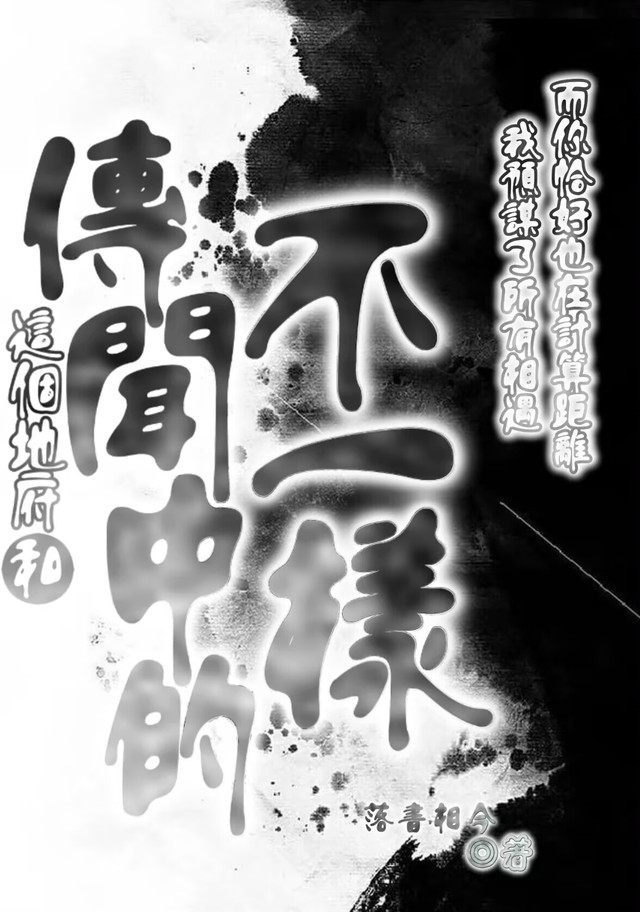 這個地府和
傳聞中的
不一樣
我預謀了所有相遇
而你恰好也在計算距離
落書相今
◎著